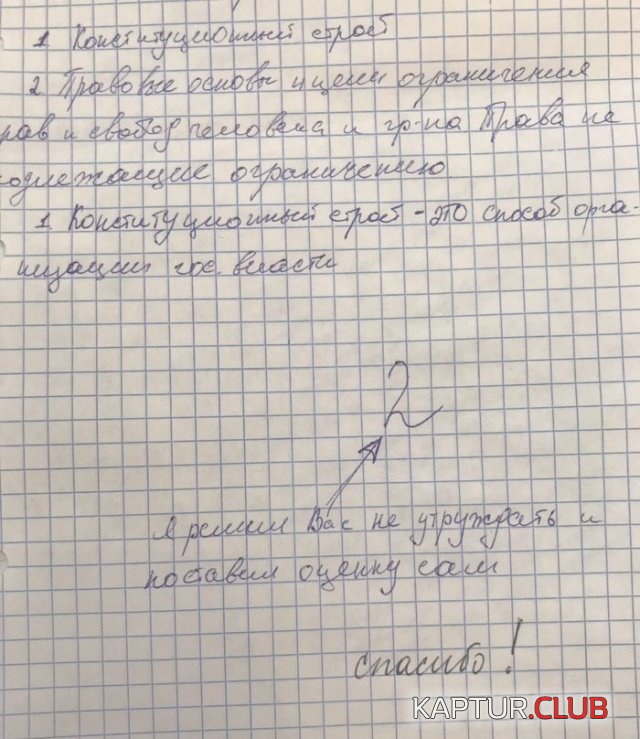 1 Конституционный строй
2 Правовые основы и цели ограничения
рав и свобод человека и гр-на Права не
одлежащие ограничению
1 Конституционный строй - это способ орга-
низации гос. власти
2
Я решил Вас не утруждать и
поставил оценку сам
спасибо!
KAPTUR.CLUB